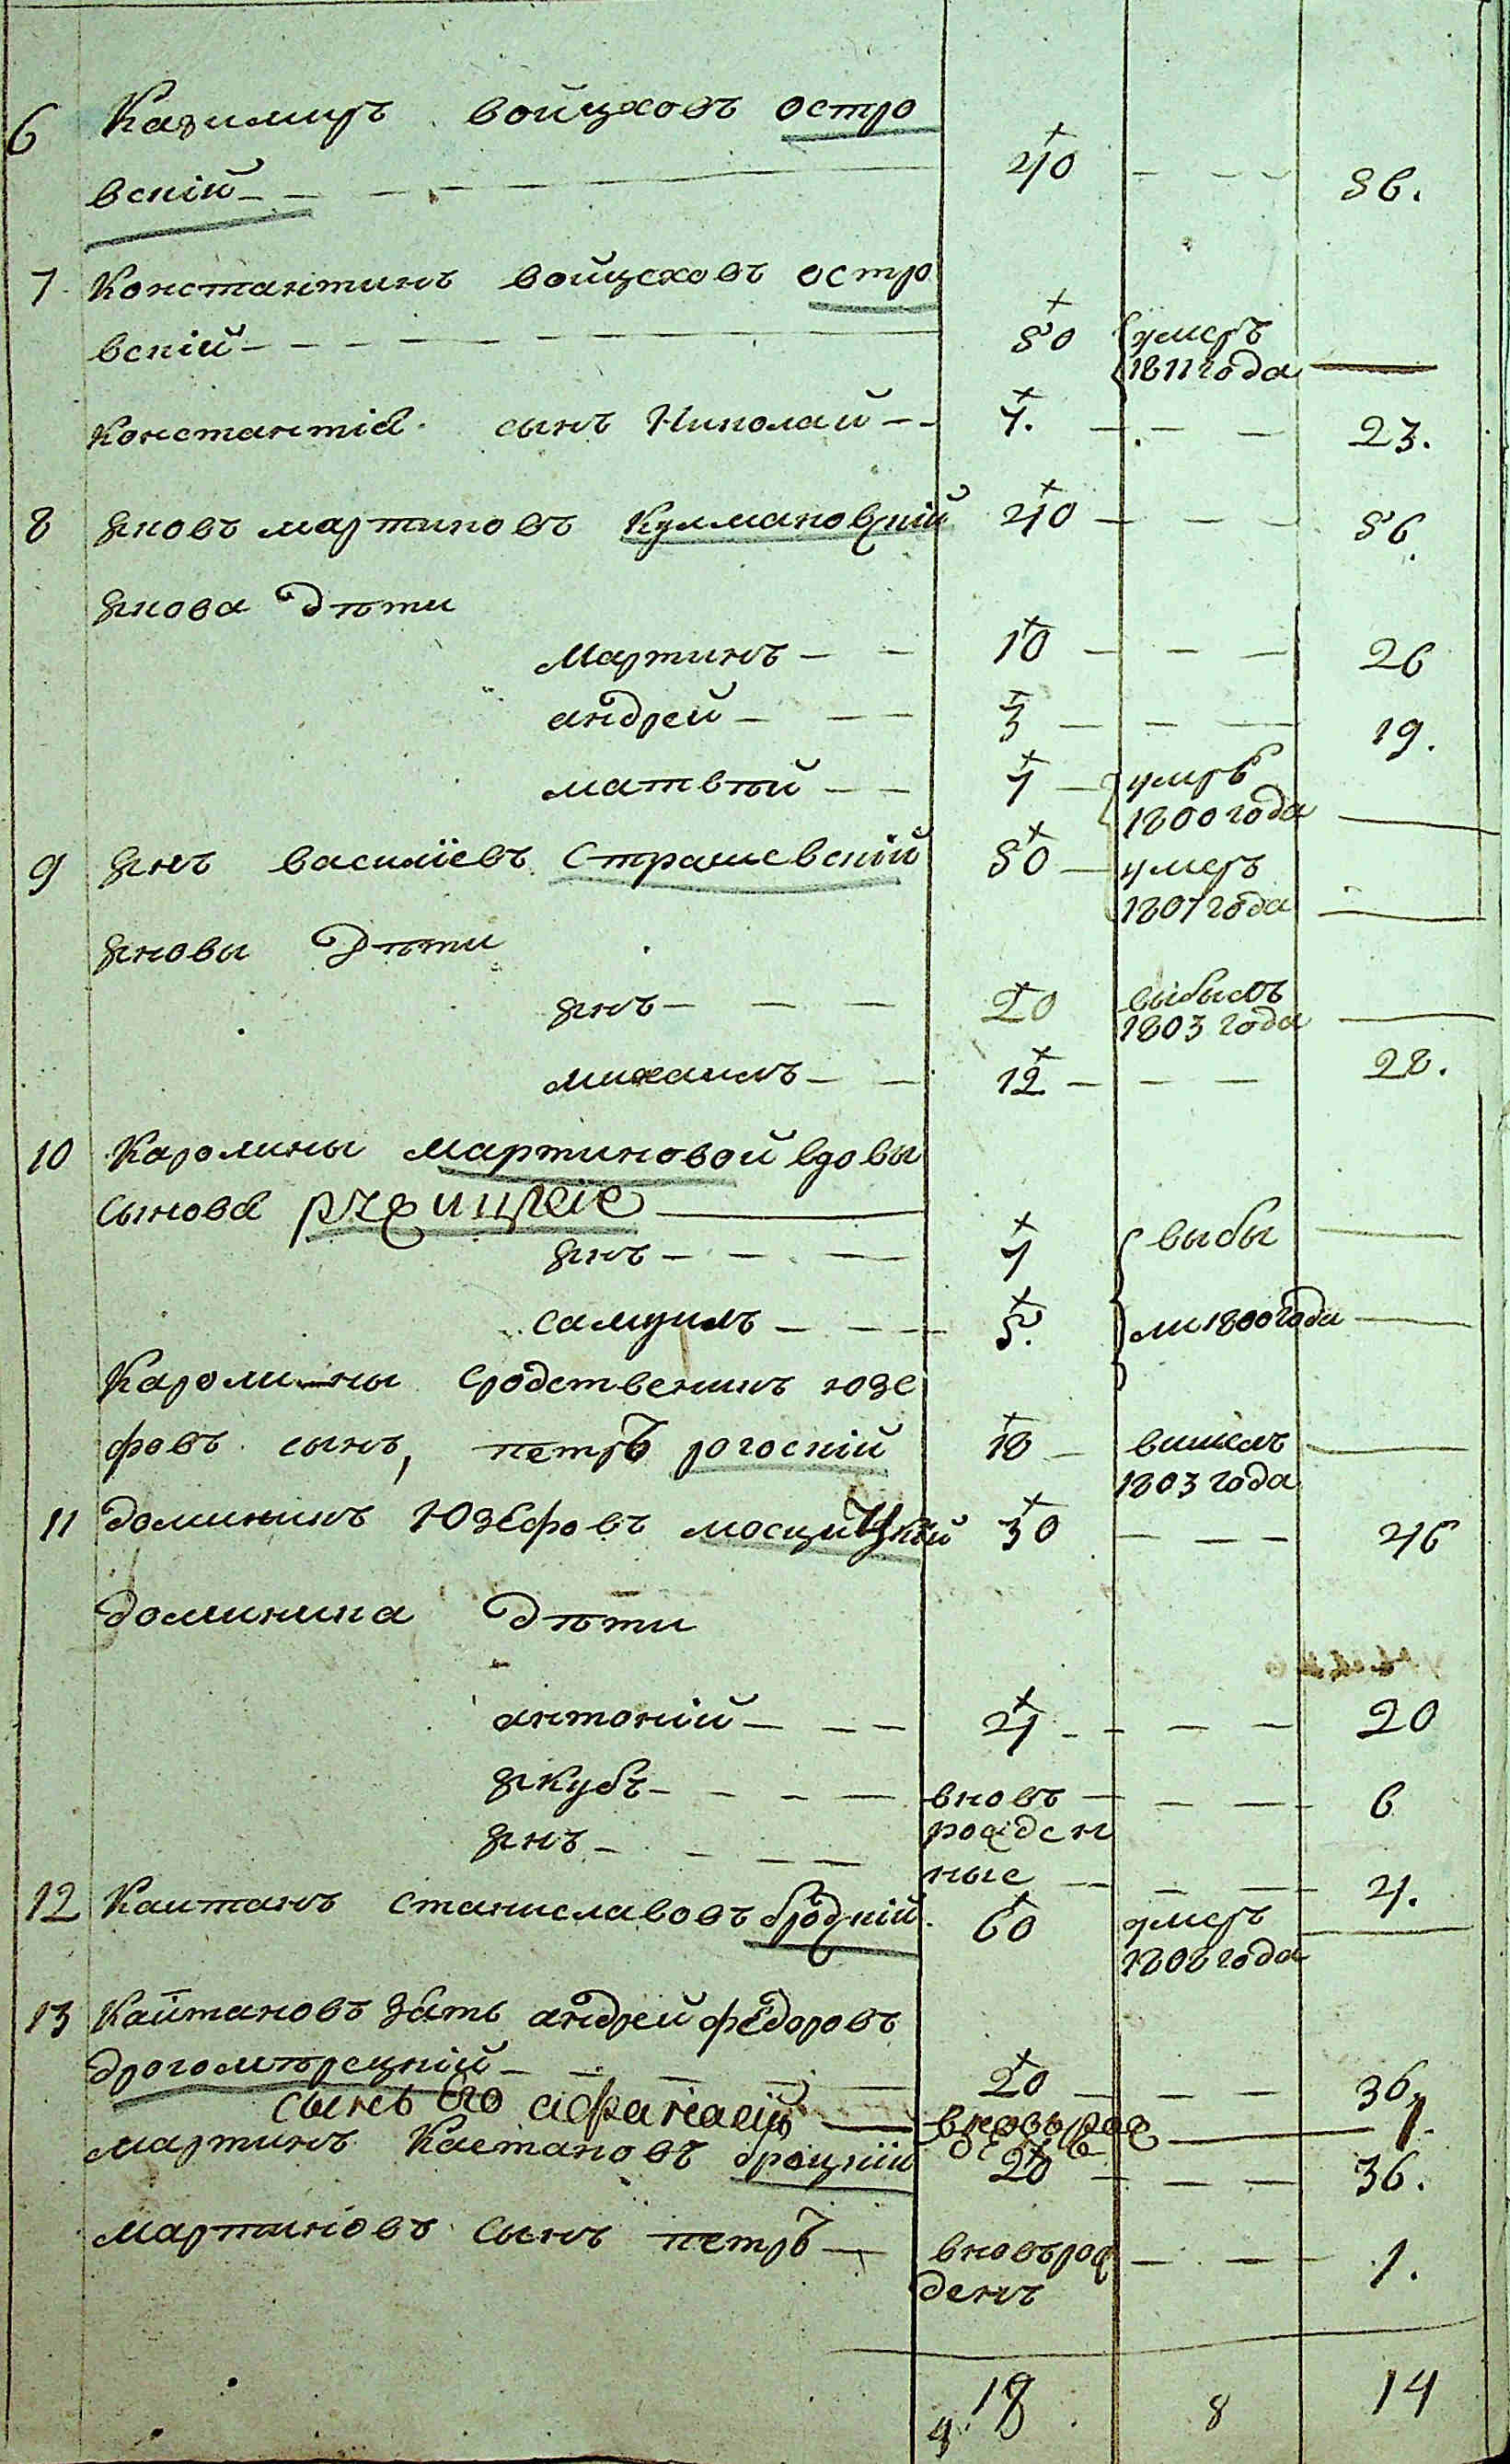 6 Казимиръ войцховъ остро
вскій 40 56.
7 Константинъ войцеховъ остро
вскій 50 умеръ
1811 года
константія сынъ Николай 7. 23.
8 яновъ мартиновъ Кулмановскій 40 56.
янова дѣти
Мартинъ 10 26
андрей 3 19.
матвѣй 7 умръ
1800 года
9 янъ василіевъ Страшевскій 50 умеръ
1807 года
яновы дѣти
янъ 20 выбылъ
1803 года
михаилъ 12 28.
10 Каролины мартиновой вдовы
сыновя
янъ 7 выбы
самуилъ 5. ли 1800 года
Каролины сродственикъ юзе
фовъ сынъ, петръ рогоскій 18 вишелъ
1803 года
11 доминикъ Юзефовъ мосцицкій 30 46
доминика дѣти
антоній 4 20
якубъ вновь 6
янъ рожден
ные 4.
12 Каитанъ станиславовъ бродскій 60 умеръ
1808 года
13 Кайтановъ зять андрей федоровъ
дрогомѣрецкій 20 36
сынъ его афанасій вновь рож
денъ 1.
мартинъ Каетановъ броцкій 20 36.
мартиновъ сынъ петръ вновърож 1.
денъ
18 8 14
4.